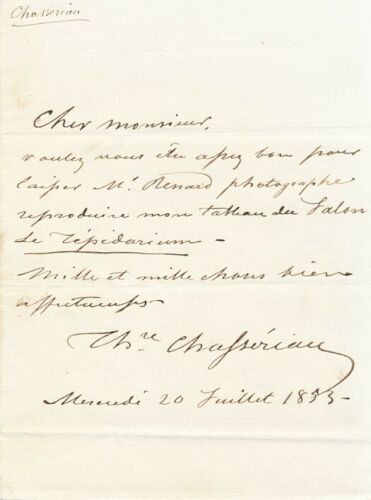 Chassériau
Cher monsieur,
voulez vous être assez bon pour
laisser Mr. Renard photographe
reproduire mon tableau du Salon
Le Tépidarium –
Mille et mille choses bien
affectueuses
Thre Chassériau
Mercredi 20 Juillet 1853 –